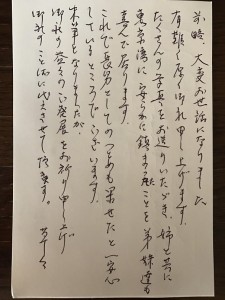 前略、大変お世話になりました
有難く厚く御礼申し上げます。
たくさんの写真をお送りいただき、姉と共に
東京湾に安らかに鎮まったことを弟妹達も
喜んで居ります。
これで長男としてのつとめも果せたと一安心
しているところでございます。
末筆となりましたが、
御社の益々のご発展をお祈り申し上げ
御礼のことばに代えさせて頂きます。